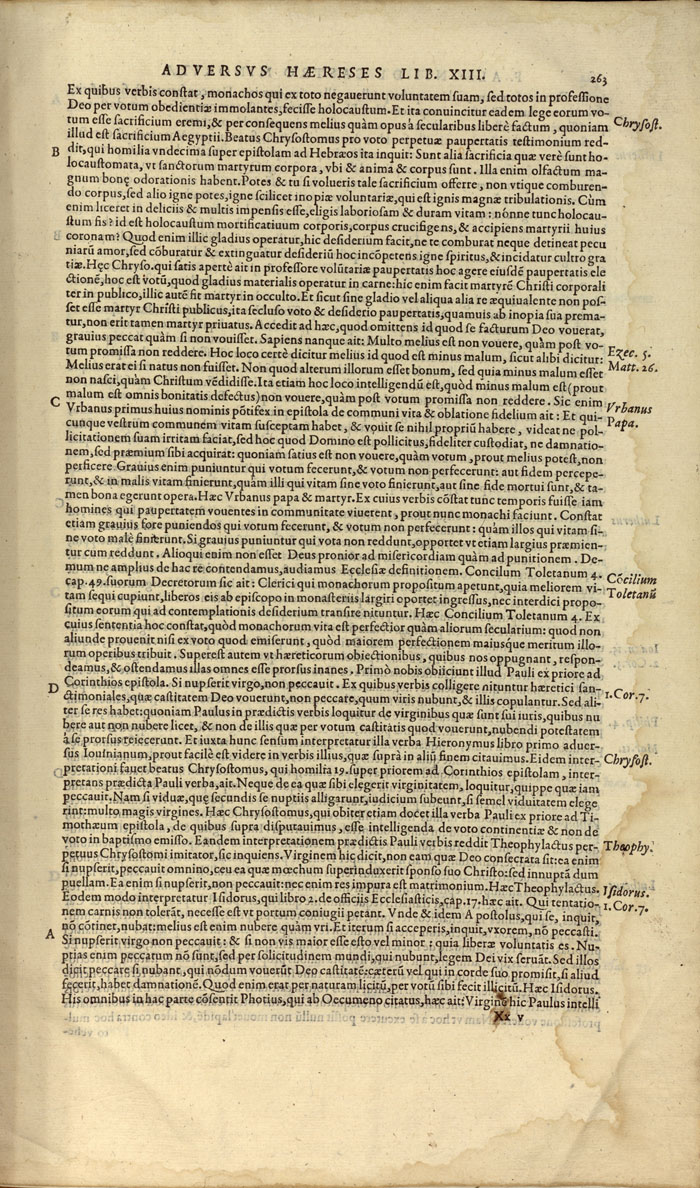 ADVERSVS HÆRESES LIB. XIII.
263
Ex quibus verbis constat, monachos qui ex toto negauerunt voluntatem suam, sed totos in professione
Deo per votum obedientiæ immolantes, fecisse holocaustum. Et ita conuincitur eadem lege eorum vo-
tum esse sacrificium eremi, & per consequens melius quàm opus à secularibus liberè factum, quoniam
Chrysost.
illud est sacrificium Aegyptii. Beatus Chrysostomus pro voto perpetuæ paupertatis testimonium red-
B
dit, qui homilia vndecima super epistolam ad Hebræos ita inquit: Sunt alia sacrificia quæ verè sunt ho-
locaustomata, vt sanctorum martyrum corpora, vbi & anima & corpus sunt. Illa enim olfactum ma-
gnum bonę odorationis habent. Potes & tu si volueris tale sacrificium offerre, non vtique comburen-
do corpus, sed alio igne potes, igne scilicet inopiæ voluntariæ, qui est ignis magnæ tribulationis. Cùm
enim liceret in deliciis & multis impensis esse, eligis laboriosam & duram vitam: nónne tunc holocau-
stum fis? id est holocaustum mortificatiuum corporis, corpus crucifigens, & accipiens martyrii huius
coronam? Quod enim illic gladius operatur, hic desiderium facit, ne te comburat neque detineat pecu
niarũ amor, sed cõburatur & extinguatur desideriũ hoc incõpetens igne spiritus, & incidatur cultro gra
tiæ. Hęc Chryso. qui satis apertè ait in professore volũtariæ paupertatis hoc agere eiusdẽ paupertatis ele
ctionẽ, hoc est votũ, quod gladius materialis operatur in carne: hic enim facit martyrẽ Christi corporali
ter in publico, illic autẽ fit martyr in occulto. Et sicut sine gladio vel aliqua alia re æquiualente non pos-
set esse martyr Christi publicus, ita secluso voto & desiderio paupertatis, quamuis ab inopia sua prema-
tur, non erit tamen martyr priuatus. Accedit ad hæc, quod omittens id quod se facturum Deo vouerat,
grauius peccat quàm si non vouisset. Sapiens nanque ait: Multo melius est non vouere, quàm post vo-
Ezec. 5.
tum promissa non reddere. Hoc loco certè dicitur melius id quod est minus malum, sicut alibi dicitur:
Matt. 26.
Melius erat ei si natus non fuisset. Non quod alterum illorum esset bonum, sed quia minus malum esset
non nasci, quàm Christum vẽdidisse. Ita etiam hoc loco intelligendũ est, quòd minus malum est (prout
malum est omnis bonitatis defectus) non vouere, quàm post votum promissa non reddere. Sic enim
C
Vrbanus
Vrbanus primus huius nominis põtifex in epistola de communi vita & oblatione fidelium ait: Et qui-
Papa.
cunque vestrum communem vitam susceptam habet, & vouit se nihil propriũ habere, videat ne pol-
licitationem suam irritam faciat, sed hoc quod Domino est pollicitus, fideliter custodiat, ne damnatio-
nem, sed præmium sibi acquirat: quoniam satius est non vouere, quàm votum, prout melius potest, non
perficere. Grauius enim puniuntur qui votum fecerunt, & votum non perfecerunt: aut fidem percepe-
runt, & in malis vitam finierunt, quàm illi qui vitam sine voto finierunt, aut sine fide mortui sunt, & ta-
men bona egerunt opera. Hæc Vrbanus papa & martyr. Ex cuius verbis cõstat tunc temporis fuisse iam
homines qui paupertatem vouentes in communitate viuerent, prout nunc monachi faciunt. Constat
etiam grauius fore puniendos qui votum fecerunt, & votum non perfecerunt: quàm illos qui vitam si-
ne voto malè finierunt. Si grauius puniuntur qui vota non reddunt, opportet vt etiam largius præmien-
tur cum reddunt. Alioqui enim non esset Deus pronior ad misericordiam quàm ad punitionem. De-
mum ne amplius de hac re contendamus, audiamus Ecclesiæ definitionem. Concilium Toletanum 4.
Cõcilium
cap. 49. suorum Decretorum sic ait: Clerici qui monachorum propositum apetunt, quia meliorem vi-
Toletanũ
tam sequi cupiunt, liberos eis ab episcopo in monasteriis largiri oportet ingressus, nec interdici propo-
situm eorum qui ad contemplationis desiderium transire nituntur. Hæc Concilium Toletanum 4. Ex
cuius sententia hoc constat, quòd monachorum vita est perfectior quàm aliorum secularium: quod non
aliunde prouenit nisi ex voto quod emiserunt, quòd maiorem perfectionem maiusque meritum illo-
rum operibus tribuit. Superest autem vt hæreticorum obiectionibus, quibus nos oppugnant, respon-
deamus, & ostendamus illas omnes esse prorsus inanes. Primò nobis obiiciunt illud Pauli ex priore ad
Corinthios epistola. Si nupserit virgo, non peccauit. Ex quibus verbis colligere nituntur hæretici san-
D
1. Cor. 7.
ctimoniales, quæ castitatem Deo vouerunt, non peccare, quum viris nubunt, & illis copulantur. Sed ali-
ter se res habet: quoniam Paulus in prædictis verbis loquitur de virginibus quæ sunt sui iuris, quibus nu
bere aut non nubere licet, & non de illis quæ per votum castitatis quod vouerunt, nubendi potestatem
à se prorsus reiecerunt. Et iuxta hunc sensum interpretatur illa verba Hieronymus libro primo aduer-
sus Iouinianum, prout facilè est videre in verbis illius, quæ suprà in aliũ finem citauimus. Eidem inter-
Chrysost.
pretationi fauet beatus Chrysostomus, qui homilia 19. super priorem ad Corinthios epistolam, inter-
pretans prædicta Pauli verba, ait. Neque de ea quæ sibi elegerit virginitatem, loquitur, quippe quæ iam
peccauit. Nam si viduæ, quę secundis se nuptiis alligarunt, iudicium subeunt, si semel viduitatem elege
rint: multo magis virgines. Hæc Chrysostomus, qui obiter etiam docet illa verba Pauli ex priore ad Ti-
motheum epistola, de quibus supra disputauimus, esse intelligenda de voto continentiæ & non de
voto in baptismo emisso. Eandem interpretationem prædictis Pauli verbis reddit Theophylactus per-
Theophy.
petuus Chrysostomi imitator, sic inquiens. Virginem hic dicit, non eam quæ Deo consecrata sit: ea enim
si nupserit, peccauit omnino, ceu ea quæ mœchum superinduxerit sponso suo Christo: sed innuptã dum
puellam. Ea enim si nupserit, non peccauit: nec enim res impura est matrimonium. Hæc Theophylactus.
Isidorus.
Eodem modo interpretatur Isidorus, qui libro 2. de officiis Ecclesiasticis, cap. 17. hæc ait. Qui tentatio-
1. Cor. 7.
nem carnis non tolerãt, necesse est vt portum coniugii petant. Vnde & idem Apostolus, qui se, inquit,
nõ cõtinet, nubat: melius est enim nubere quàm vri. Et iterum si acceperis, inquit, vxorem, nõ peccasti.
A
Si nupserit virgo non peccauit: & si non vis maior esse esto vel minor: quia liberæ voluntatis es. Nu-
ptias enim peccatum nõ sunt, sed per solicitudinem mundi, qui nubunt, legem Dei vix seruãt. Sed illos
dicit peccare si nubant, qui nõdum vouerũt Deo castitatẽ: cæterũ vel qui in corde suo promisit, si aliud
fecerit, habet damnationẽ. Quod enim erat per naturam licitũ, per votũ sibi fecit illicitũ. Hæc Isidorus.
His omnibus in hac parte cõsentit Photius, qui ab Oecumeno citatus, hæc ait: Virginẽ hic Paulus intelli
Xx v